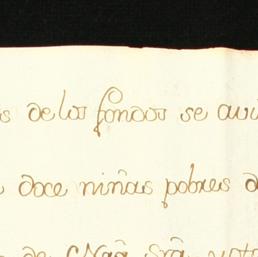 s de los fondos se avi
doce niñas pobres d
de Nrã. Srã.